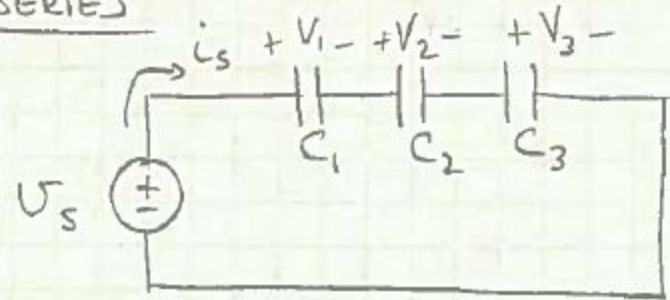 SERIES
i_s + V_1 - + V_2 - + V_3 -
C_1 C_2 C_3
υ_s + -